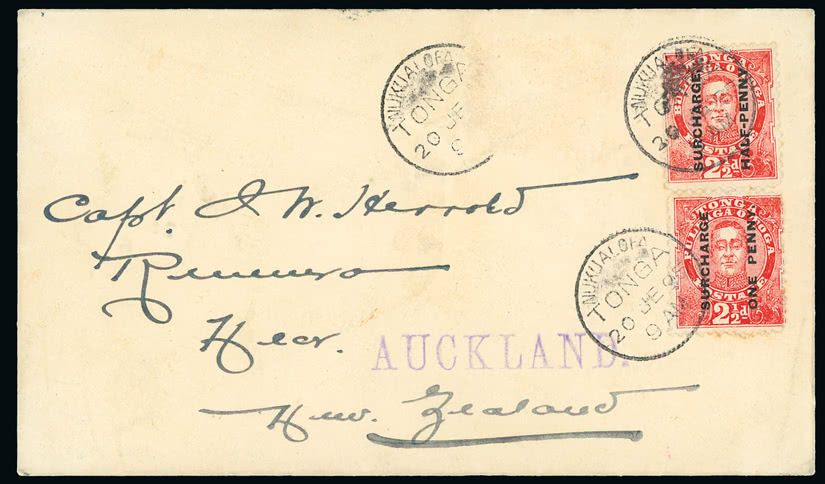 NUKUALOFA
TONGA
20 JE
9
NUKUALOFA
TONGA
20
TONGA
SURCHARGE.
HALF-PENNY.
POSTAGE
2½d
TONGA
SURCHARGE.
ONE PENNY.
POSTAGE
2½d
NUKUALOFA
TONGA
20 JE 95
9 AM
Capt. J. W. Herrold
Remuera
Near.
AUCKLAND.
New. Zealand